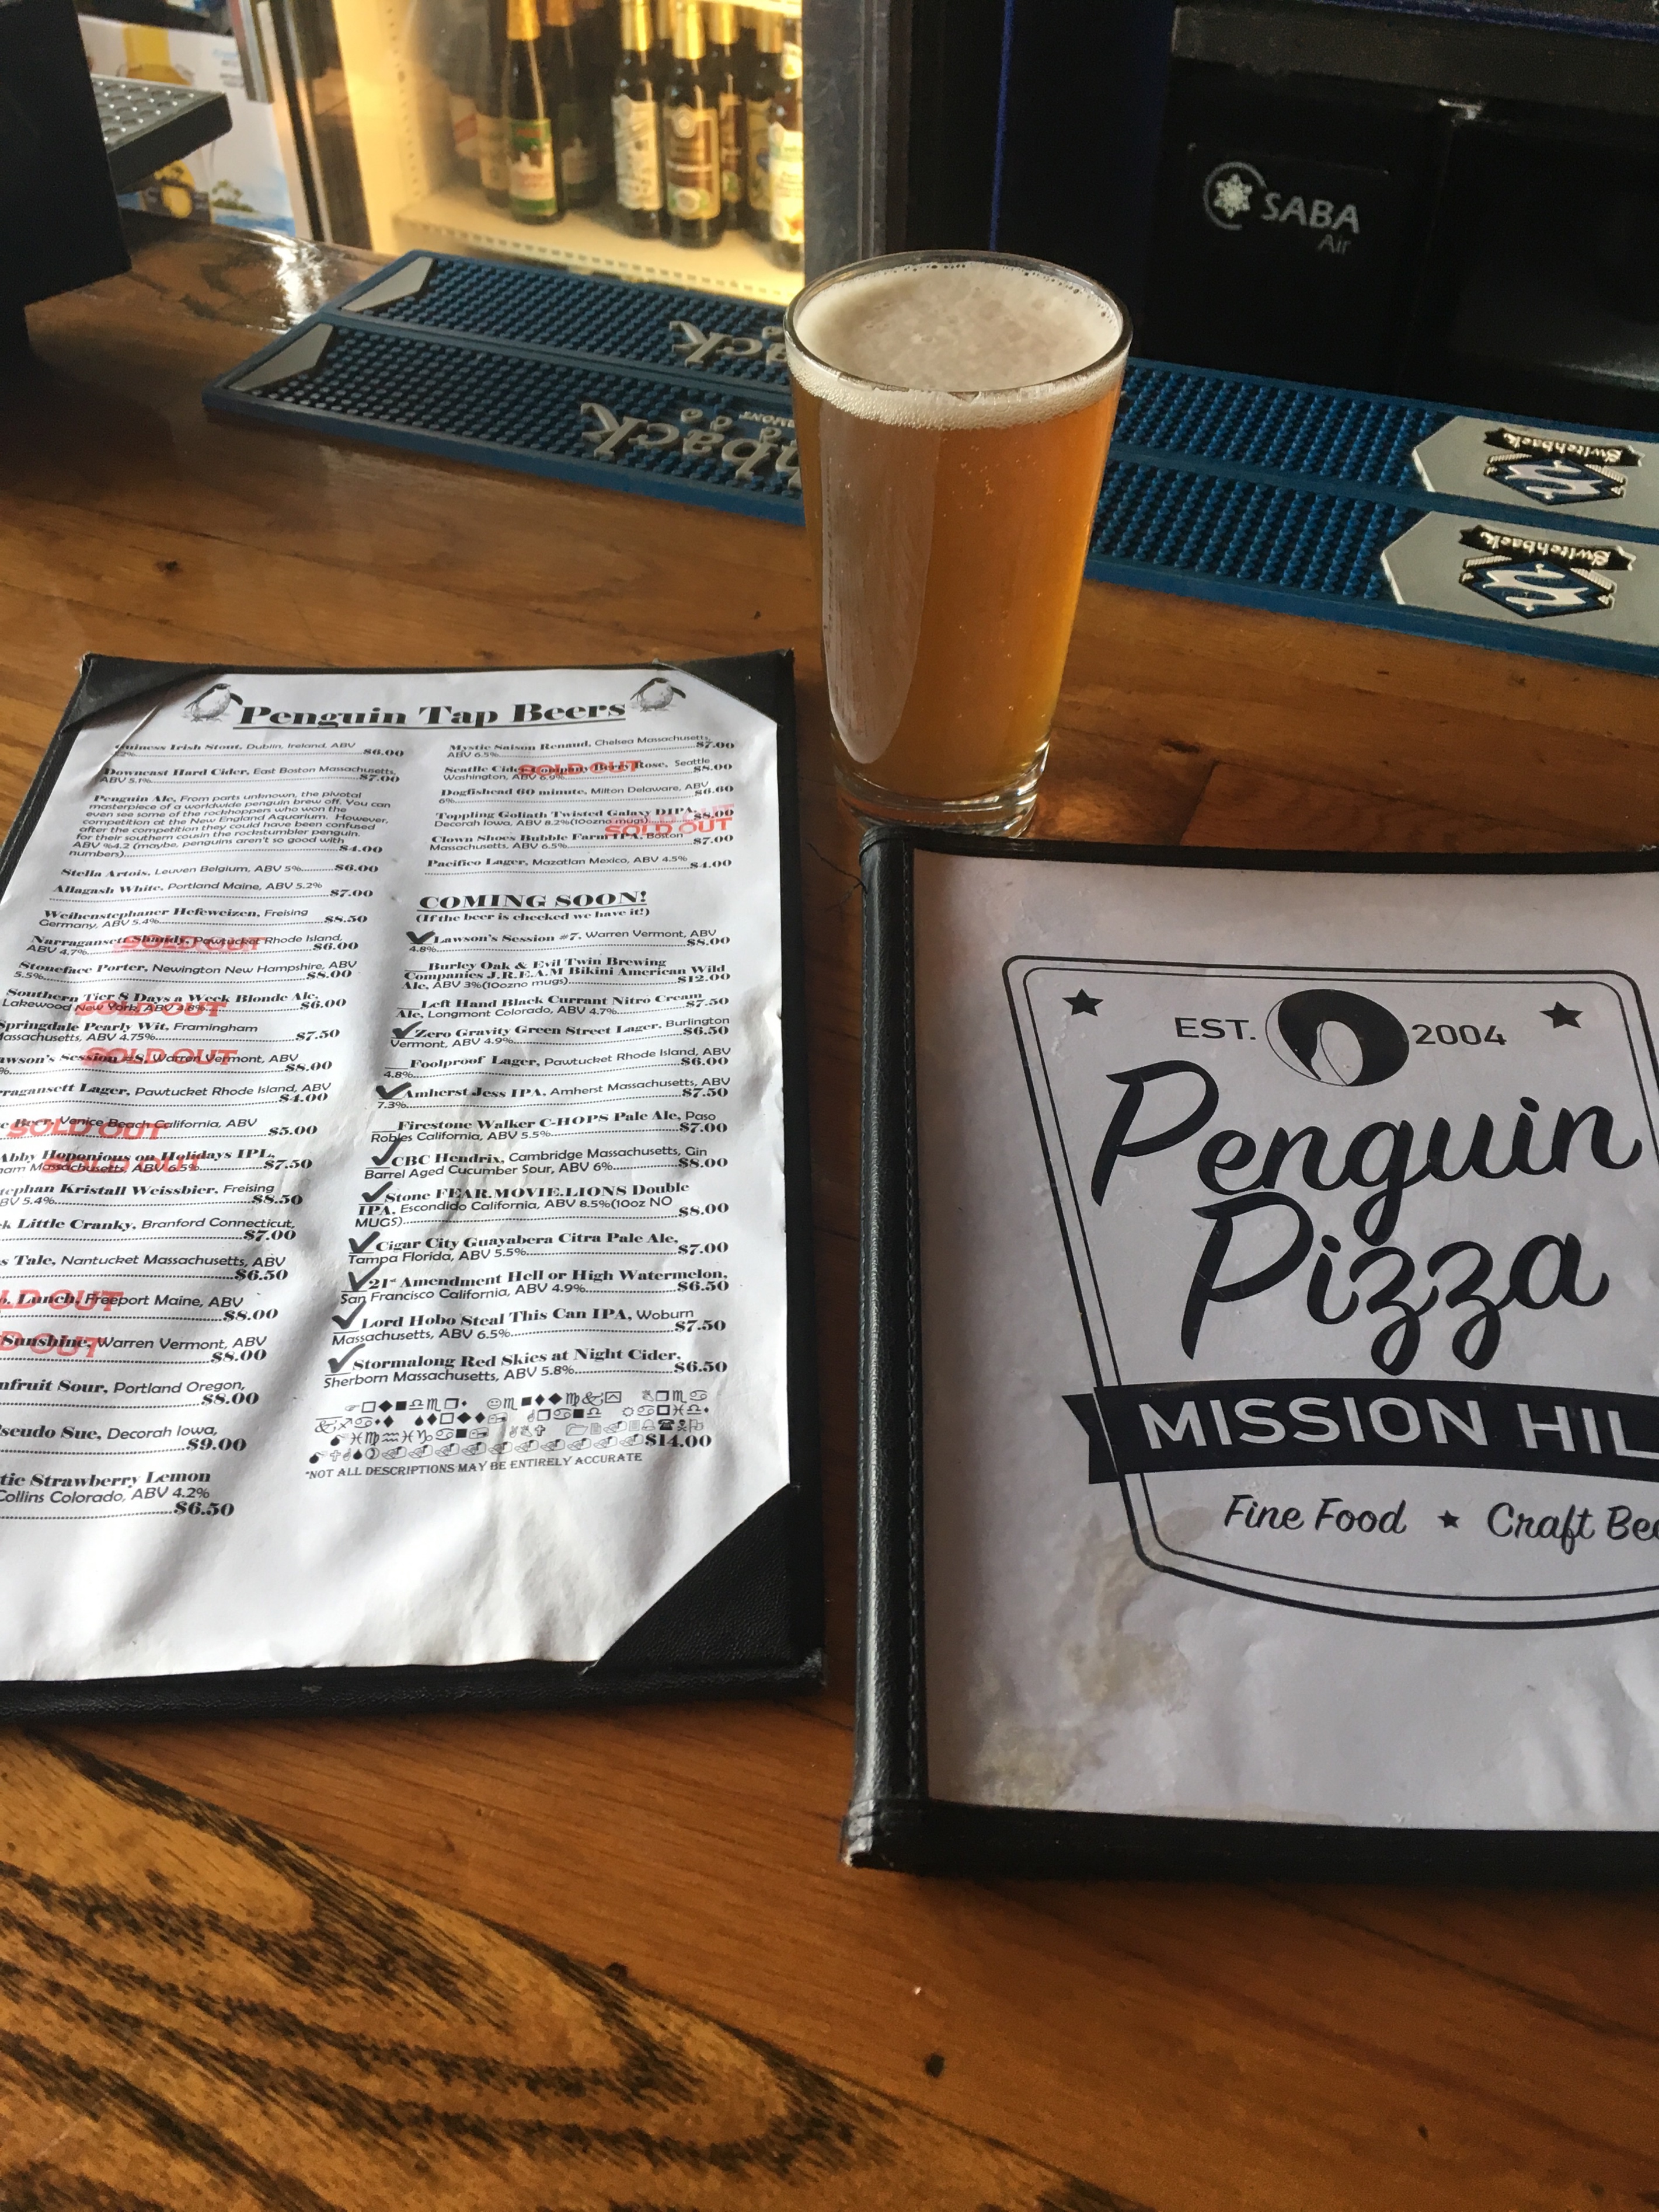 SABA
Air
Switchback
Switchback
Penguin Tap Beers
Guiness Irish Stout, Dublin, Ireland, ABV
$6.00
Downeast Hard Cider, East Boston Massachusetts,
ABV 5.1%$7.00
Penguin Ale, From parts unknown, the pivotal
masterpiece of a worldwide penguin brew off. You can
even see some of the rockhoppers who won the
competition at the New England Aquarium. However,
after the competition they could have been confused
for their southern cousin the rockstumbler penguin.
ABV %4.2 (maybe, penguins aren't so good with
numbers)$4.00
Stella Artois, Leuven Belgium, ABV 5%$6.00
Allagash White, Portland Maine, ABV 5.2%
$7.00
Weihenstephaner Hefeweizen, Freising
Germany, ABV 5.4%$8.50
Narragansett Shandy, Pawtucket Rhode Island,
SOLD OUT
ABV 4.7%$6.00
Stoneface Porter, Newington New Hampshire, ABV
5.5%$8.00
Southern Tier 8 Days a Week Blonde Ale,
SOLD OUT
Lakewood New York, ABV 4.8%$6.00
Springdale Pearly Wit, Framingham
Massachusetts, ABV 4.75%$7.50
Session #8, Warren Vermont, ABV
SOLD OUT
$8.00
Lager, Pawtucket Rhode Island, ABV
$4.00
Venice Beach California, ABV
SOLD OUT
$5.00
Abby Hoponious on Holidays IPL,
SOLD OUT
Massachusetts, ABV 6.5%$7.50
Kristall Weissbier, Freising
5.4%$8.50
Little Cranky, Branford Connecticut,
$7.00
Tale, Nantucket Massachusetts, ABV
$6.50
Lunch, Freeport Maine, ABV
OUT
$8.00
Sunshine, Warren Vermont, ABV
OUT
$8.00
Sour, Portland Oregon,
$8.00
Sue, Decorah Iowa,
$9.00
Strawberry Lemon
Collins Colorado, ABV 4.2%
$6.50
Mystic Saison Renaud, Chelsea Massachusetts,
ABV 6.5%$7.00
Seattle Cider Company Berry Rose, Seattle
SOLD OUT
Washington, ABV 6.9%$8.00
Dogfishead 60 minute, Milton Delaware, ABV
6%$6.60
Toppling Goliath Twisted Galaxy DIPA,
Decorah Iowa, ABV 8.2%(10ozno mugs)$8.00
SOLD OUT
Clown Shoes Bubble Farm IPA, Boston
Massachusetts, ABV 6.5%$7.00
Pacifico Lager, Mazatlan Mexico, ABV 4.5%
$4.00
COMING SOON!
(If the beer is checked we have it!)
Lawson's Session #7, Warren Vermont, ABV
4.8%$8.00
Burley Oak & Evil Twin Brewing
Companies J.R.E.A.M Bikini American Wild
Ale, ABV 3%(10ozno mugs)$12.00
Left Hand Black Currant Nitro Cream
Ale, Longmont Colorado, ABV 4.7%$7.50
Zero Gravity Green Street Lager, Burlington
Vermont, ABV 4.9%$6.50
Foolproof Lager, Pawtucket Rhode Island, ABV
4.8%$6.00
Amherst Jess IPA, Amherst Massachusetts, ABV
7.3%$7.50
Firestone Walker C-HOPS Pale Ale, Paso
Robles California, ABV 5.5%$7.00
CBC Hendrix, Cambridge Massachusetts, Gin
Barrel Aged Cucumber Sour, ABV 6%$8.00
Stone FEAR.MOVIE.LIONS Double
IPA, Escondido California, ABV 8.5%(10oz NO
MUGS)$8.00
Cigar City Guayabera Citra Pale Ale,
Tampa Florida, ABV 5.5%$7.00
21st Amendment Hell or High Watermelon,
San Francisco California, ABV 4.9%$6.50
Lord Hobo Steal This Can IPA, Woburn
Massachusetts, ABV 6.5%$7.50
Stormalong Red Skies at Night Cider,
Sherborn Massachusetts, ABV 5.8%$6.50
$14.00
*NOT ALL DESCRIPTIONS MAY BE ENTIRELY ACCURATE
EST. 2004
Penguin
Pizza
MISSION
Fine Food ★ Craft